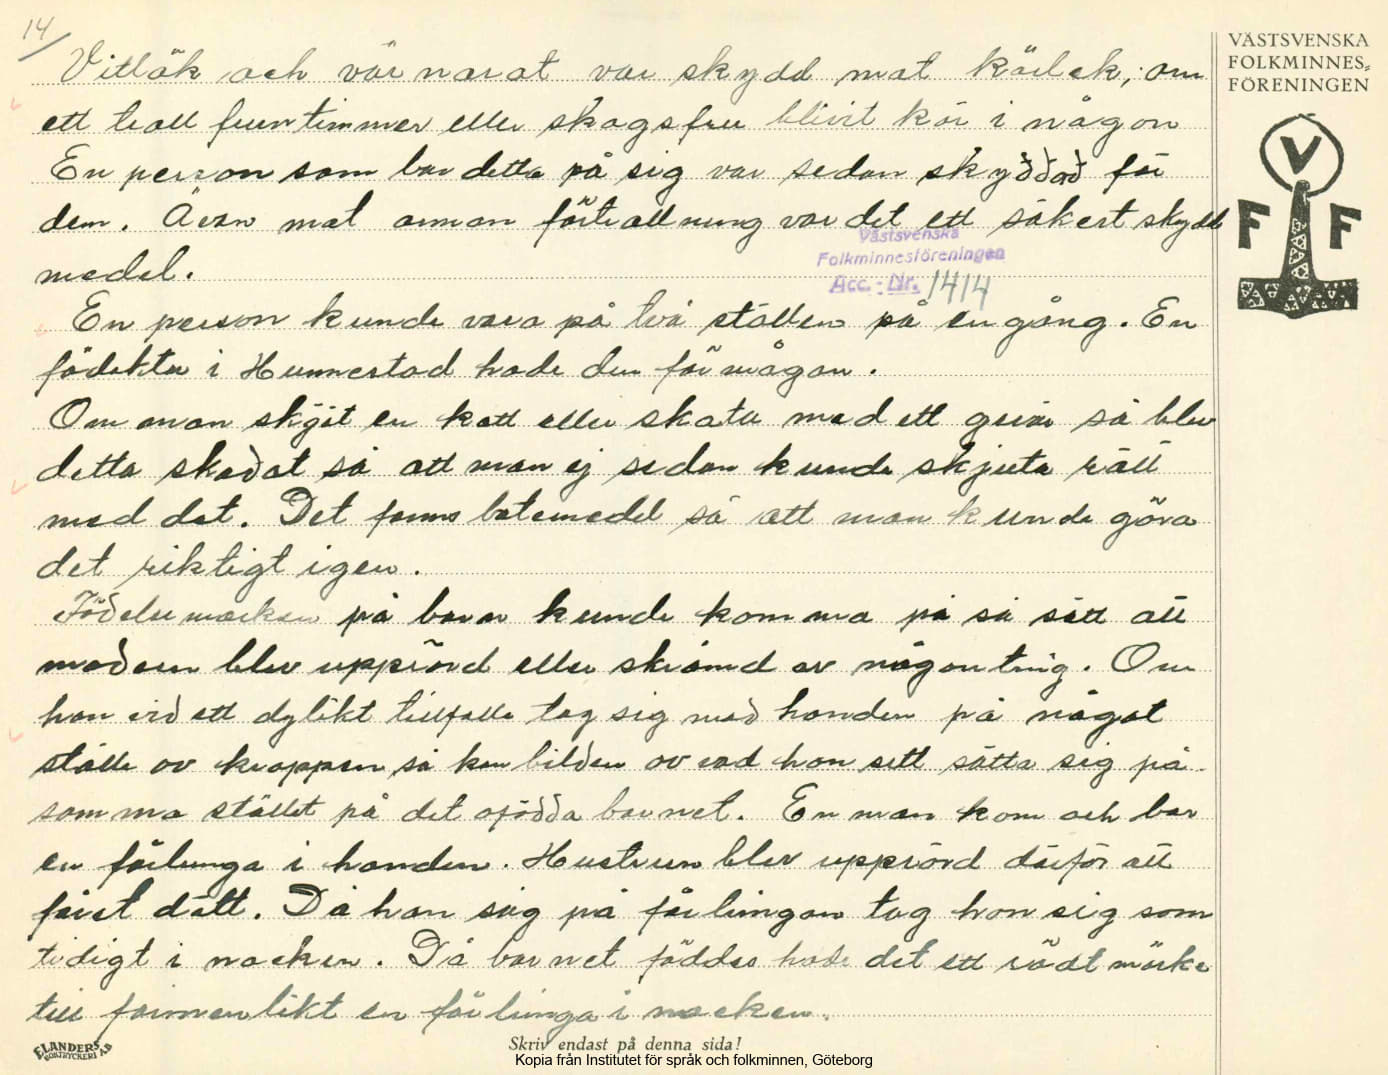 14
VÄSTSVENSKA
FOLKMINNES-
FÖRENINGEN
V
F F
Vitlök och vår narat var skydd mat kärlek, om
ett troll fruntimmer eller skogsfru blivit kär i någon
En person som bar detta på sig var sedan skyddad för
dem. Även mat annan förtrollning var det ett säkert skydds
medel.
Västsvenska
Folkminnesföreningen
Acc.-Nr. 1414
En person kunde vara på två ställen på en gång. En
i Hunnestad hade den förmågan.
Om man skjöt en katt eller skata med ett gevär så blev
detta skadat så att man ej sedan kunde skjuta rätt
med det. Det fanns botemedel så att man kunde göra
det riktigt igen.
Födelsemärken på barn kunde komma på så sätt att
modern blev upprörd eller skrämd av någonting. Om
hon vid ett dylikt tillfälle tog sig med handen på något
ställe av kroppen så kom bilden av vad hon sett sätta sig på
samma stället på det ofödda barnet. En man kom och bar
en fårlunga i handen. Hustrun blev upprörd därför att
fåret dött. Då hon såg på fårlungan tog hon sig som
tidigt i nacken. Då barnet föddes hade det ett rödt märke
till formen likt en fårlunga i nacken.
ELANDERS
BOKTRYCKERI AB
Skriv endast på denna sida!
Kopia från Institutet för språk och folkminnen, Göteborg